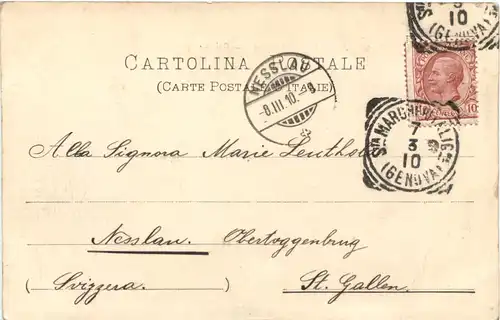 3
10
(GENOVA)
CARTOLINA POSTALE
(CARTE POSTALE D'ITALIE)
NESSLAU
-8.III.10.-8
10
STA MARGHERITA LIGRE
7
3
10
(GENOVA)
Alla Signora Marie Leuthold
Nesslau. Obertoggenburg
(Svizzera. ) St. Gallen.